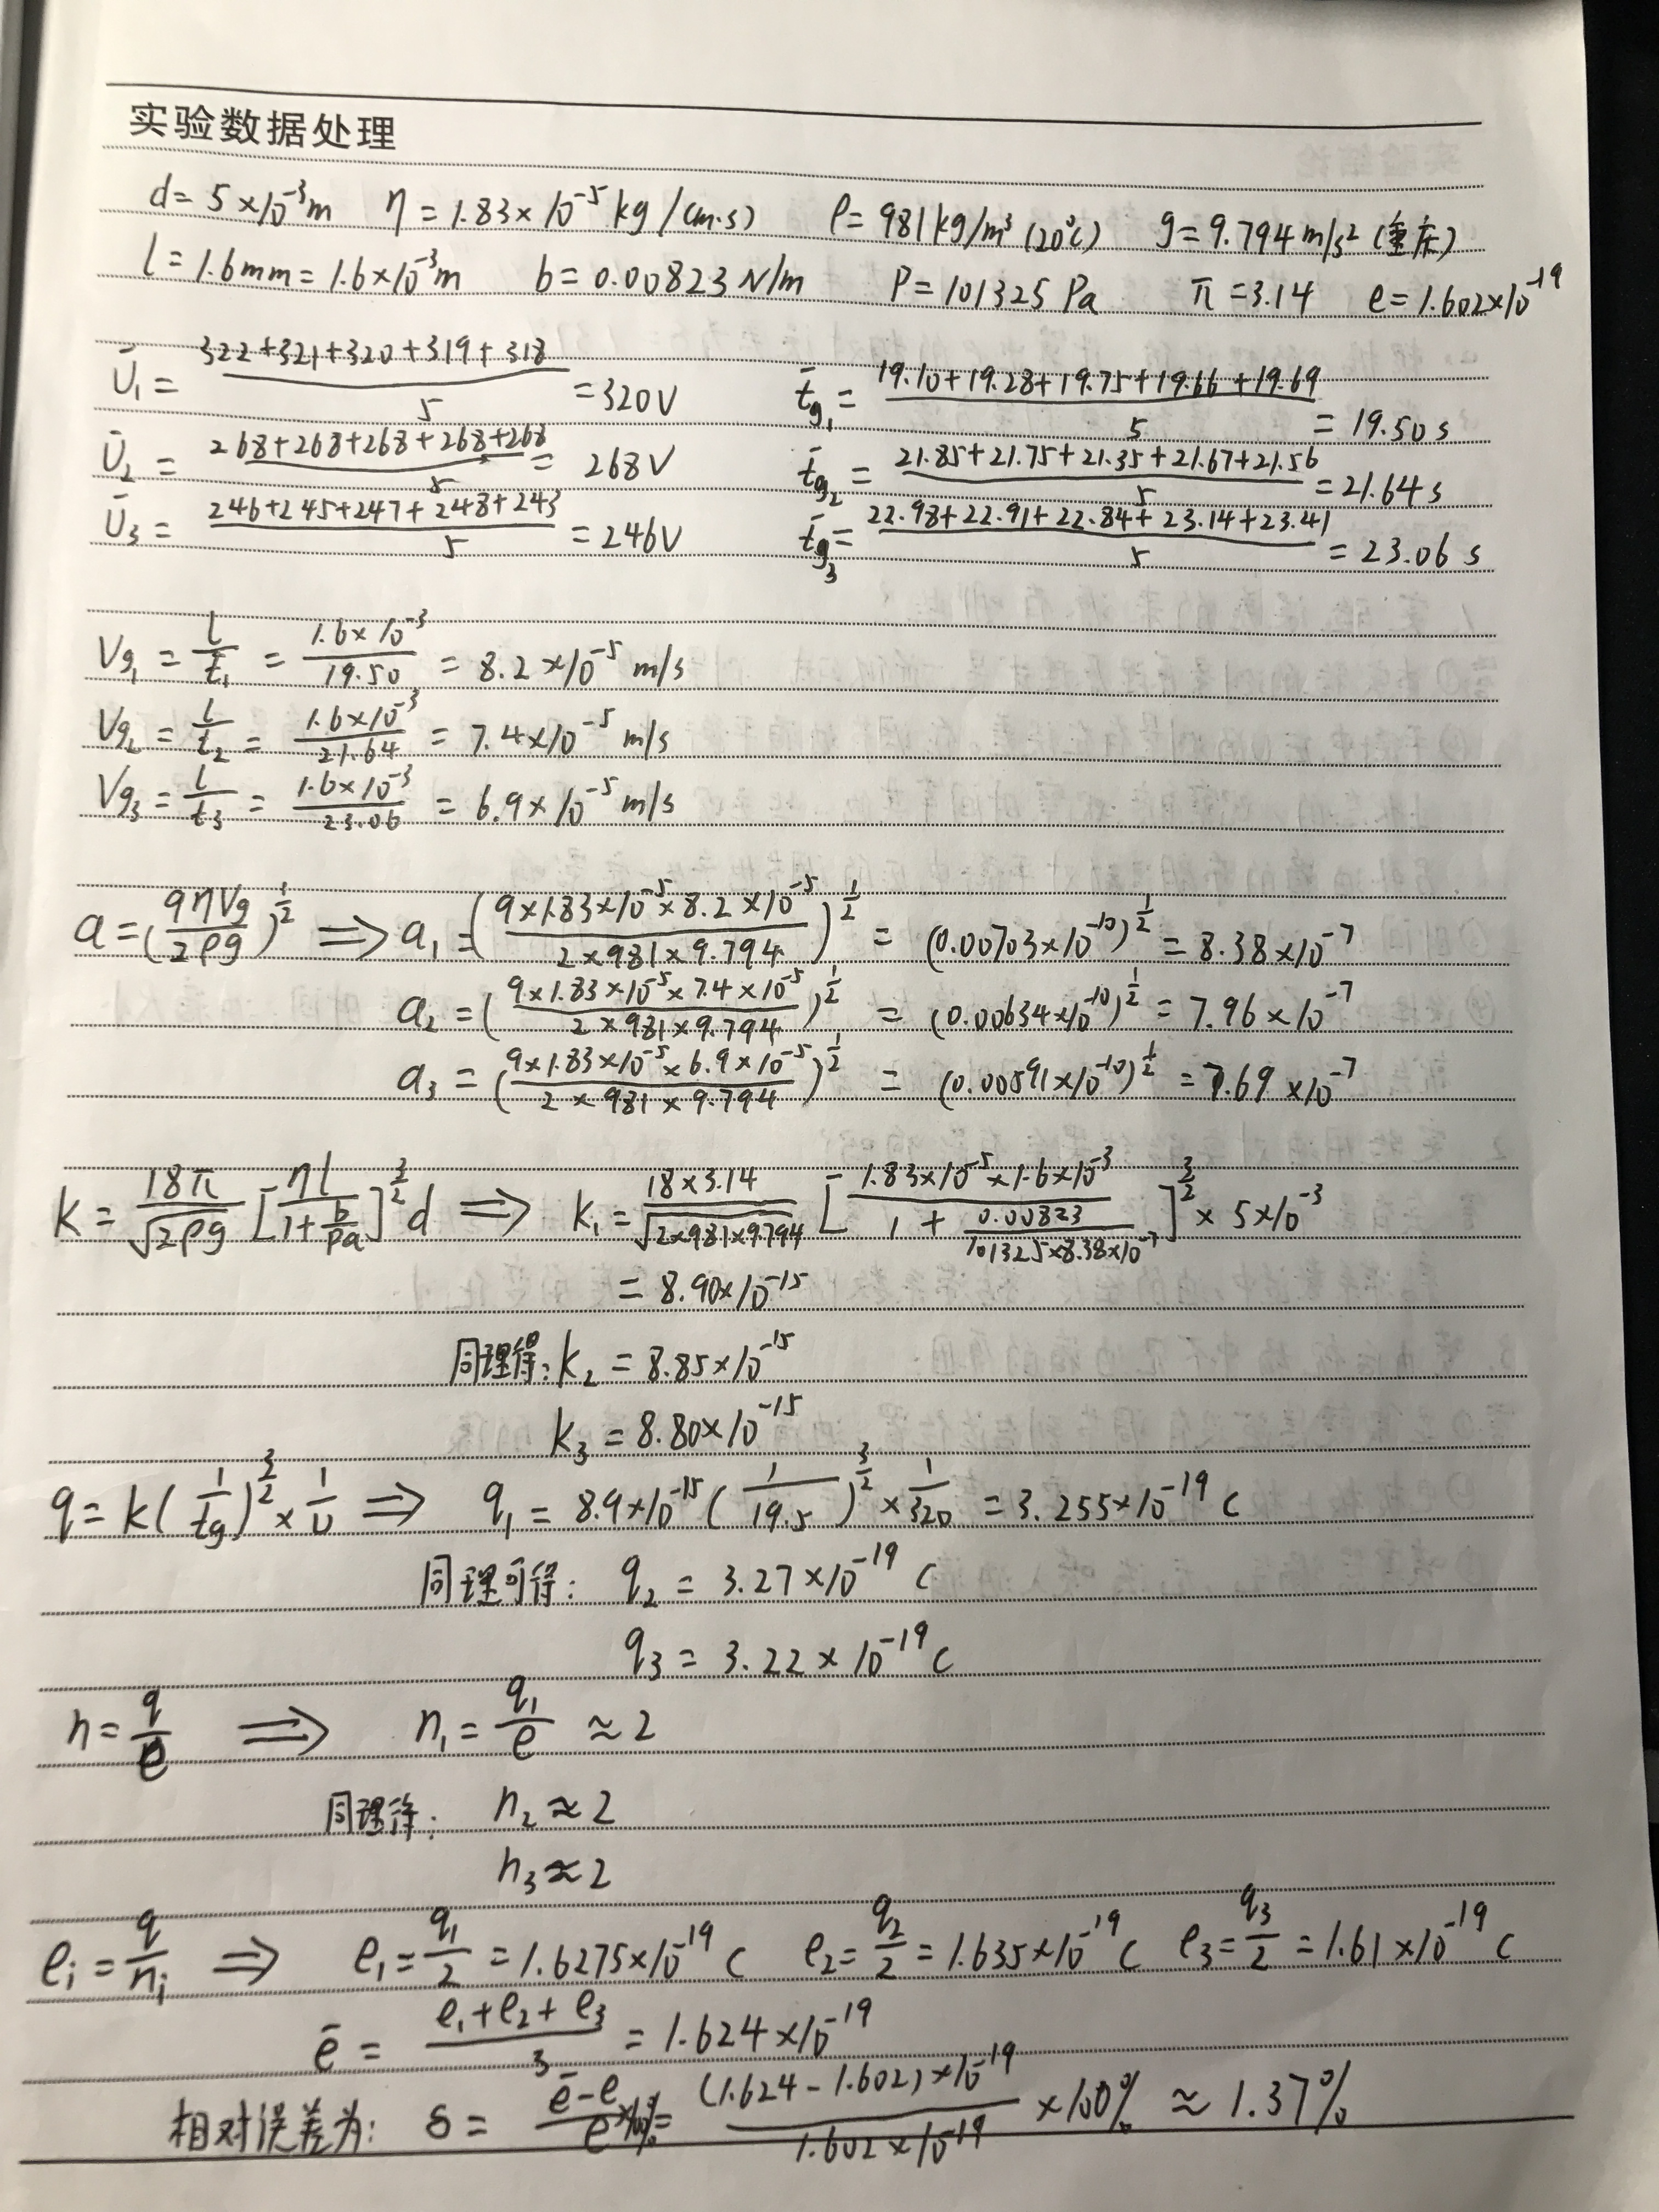 实验数据处理
d = 5×10⁻³m η = 1.83×10⁻⁵kg/(m·s) ρ = 981kg/m³ (20℃) g = 9.794m/s² (重庆)
l = 1.6mm = 1.6×10⁻³m b = 0.00823N/m P = 101325Pa π = 3.14 e = 1.602×10⁻¹⁹
Ū₁ = (322+321+320+319+318)/5 = 320V t̄g₁ = (19.10+19.28+19.75+19.66+19.69)/5 = 19.50s
Ū₂ = (268+268+268+268+268)/5 = 268V t̄g₂ = (21.85+21.75+21.35+21.67+21.56)/5 = 21.64s
Ū₃ = (246+245+247+248+243)/5 = 246V t̄g₃ = (22.98+22.91+22.84+23.14+23.41)/5 = 23.06s
Vg₁ = l/t₁ = (1.6×10⁻³)/19.50 = 8.2×10⁻⁵m/s
Vg₂ = l/t₂ = (1.6×10⁻³)/21.64 = 7.4×10⁻⁵m/s
Vg₃ = l/t₃ = (1.6×10⁻³)/23.06 = 6.9×10⁻⁵m/s
a = (9ηVg/2ρg)^(1/2) ⟹ a₁ = ((9×1.83×10⁻⁵×8.2×10⁻⁵)/(2×981×9.794))^(1/2) = (0.00703×10⁻¹⁰)^(1/2) = 8.38×10⁻⁷
a₂ = ((9×1.83×10⁻⁵×7.4×10⁻⁵)/(2×981×9.794))^(1/2) = (0.00634×10⁻¹⁰)^(1/2) = 7.96×10⁻⁷
a₃ = ((9×1.83×10⁻⁵×6.9×10⁻⁵)/(2×981×9.794))^(1/2) = (0.00591×10⁻¹⁰)^(1/2) = 7.69×10⁻⁷
k = 18π/√(2ρg) [ηl/(1+b/Pa)]^(3/2) d ⟹ k₁ = (18×3.14)/√(2×981×9.794) [(1.83×10⁻⁵×1.6×10⁻³)/(1+0.00823/(101325×8.38×10⁻⁷))]^(3/2) × 5×10⁻³
= 8.90×10⁻¹⁵
同理得: k₂ = 8.85×10⁻¹⁵
k₃ = 8.80×10⁻¹⁵
q = k(1/tg)^(3/2) × 1/U ⟹ q₁ = 8.9×10⁻¹⁵(1/19.5)^(3/2) × 1/320 = 3.255×10⁻¹⁹C
同理可得: q₂ = 3.27×10⁻¹⁹C
q₃ = 3.22×10⁻¹⁹C
n = q/e ⟹ n₁ = q₁/e ≈ 2
同理得: n₂ ≈ 2
n₃ ≈ 2
eᵢ = q/nᵢ ⟹ e₁ = q₁/2 = 1.6275×10⁻¹⁹C e₂ = q₂/2 = 1.635×10⁻¹⁹C e₃ = q₃/2 = 1.61×10⁻¹⁹C
ē = (e₁+e₂+e₃)/3 = 1.624×10⁻¹⁹
相对误差为: δ = (ē-e)/e ×100% = ((1.624-1.602)×10⁻¹⁹)/(1.602×10⁻¹⁹) ×100% ≈ 1.37%